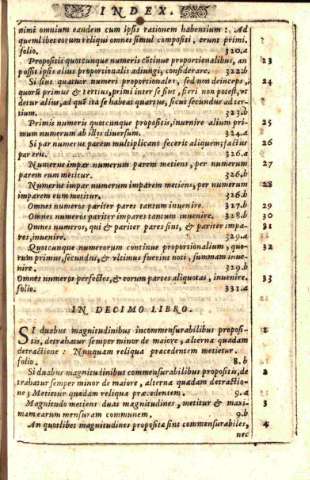 INDEX.
nimi omnium eandem cum ipsis rationem habentium: Ad
quemlibet eorum reliqui omnes simul compositi, erunt primi.
folio. 320.a
Propositis quotcunque numeris cõtinue proportionalibus, an 23
possit ipsis alius proportionalis adiungi, considerare. 322.b
Si sint quatuor numeri proportionales, sed non deinceps, 24
quorũ primus & tertius, primi inter se sint, fieri non potest, vt
detur alius, ad quẽ ita se habeat quartus, sicut secundus ad ter-
tium. 323.b
Primis numeris quotcunque propositis, inuenire alium pri- 25
mum numerum ab illis diuersum. 324.a
Si par numerus parem multiplicans fecerit aliquem; factus 26
par erit. 326.a
Numerus impar numerum parem metiens, per numerum 27
parem eum metitur. 326.b
Numerus impar numerum imparem metiens, per numerum 28
imparem eum metitur. 326.b
Omnes numeros pariter pares tantum inuenire. 327.b 29
Omnes numeros pariter impares tantum inuenire. 328.b 30
Omnes numeros, qui & pariter pares sint, & pariter impa- 31
res, inuenire. 329.a
Quotcunque numerorum continue proportionalium, quo- 32
rum primus, secundus, & vltimus fuerint noti, summam inue-
nire. 329.b
Omnes numeros perfectos, & eorum partes aliquotas, inuenire. 33
folio. 331.a
IN DECIMO LIBRO.
SI duabus magnitudinibus incommensurabilibus proposi- 1
tis, detrahatur semper minor de maiore, alterna quadam
detractione: Nunquam reliqua præcedentem metietur.
folio. 8.b
Si duabus magnitudinibus commensurabilibus propositis, de 2
trahatur semper minor de maiore, alterna quadam detractio-
ne; Metietur quædam reliqua præcedentem. 9.a
Magnitudo metiens duas magnitudines, metitur & maxi- 3
mam earum mensuram communem. 9.b
An quotlibet magnitudines propositæ sint commensurabiles, 4
nec